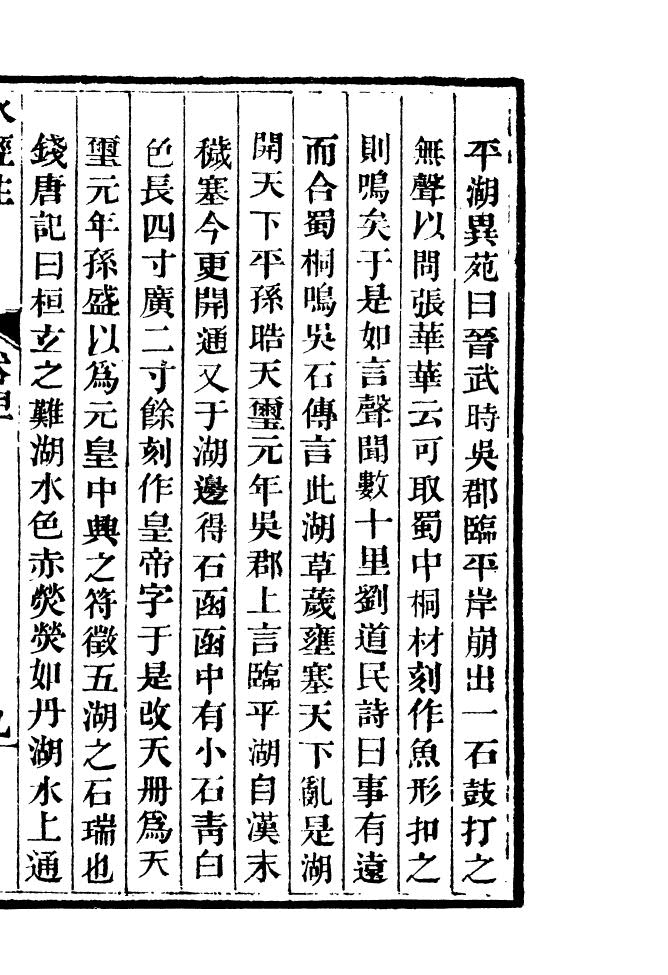 平湖異苑曰晉武時吳郡臨平岸崩出一石鼓打之
無聲以問張華華云可取蜀中桐材刻作魚形扣之
則鳴矣于是如言聲聞數十里劉道民詩曰事有遠
而合蜀桐鳴吳石傳言此湖草薉壅塞天下亂是湖
開天下平孫晧天璽元年吳郡上言臨平湖自漢末
穢塞今更開通又于湖邊得石函函中有小石青白
色長四寸廣二寸餘刻作皇帝字于是改天册爲天
璽元年孫盛以爲元皇中興之符徵五湖之石瑞也
錢唐記曰桓玄之難湖水色赤熒熒如丹湖水上通
水經注